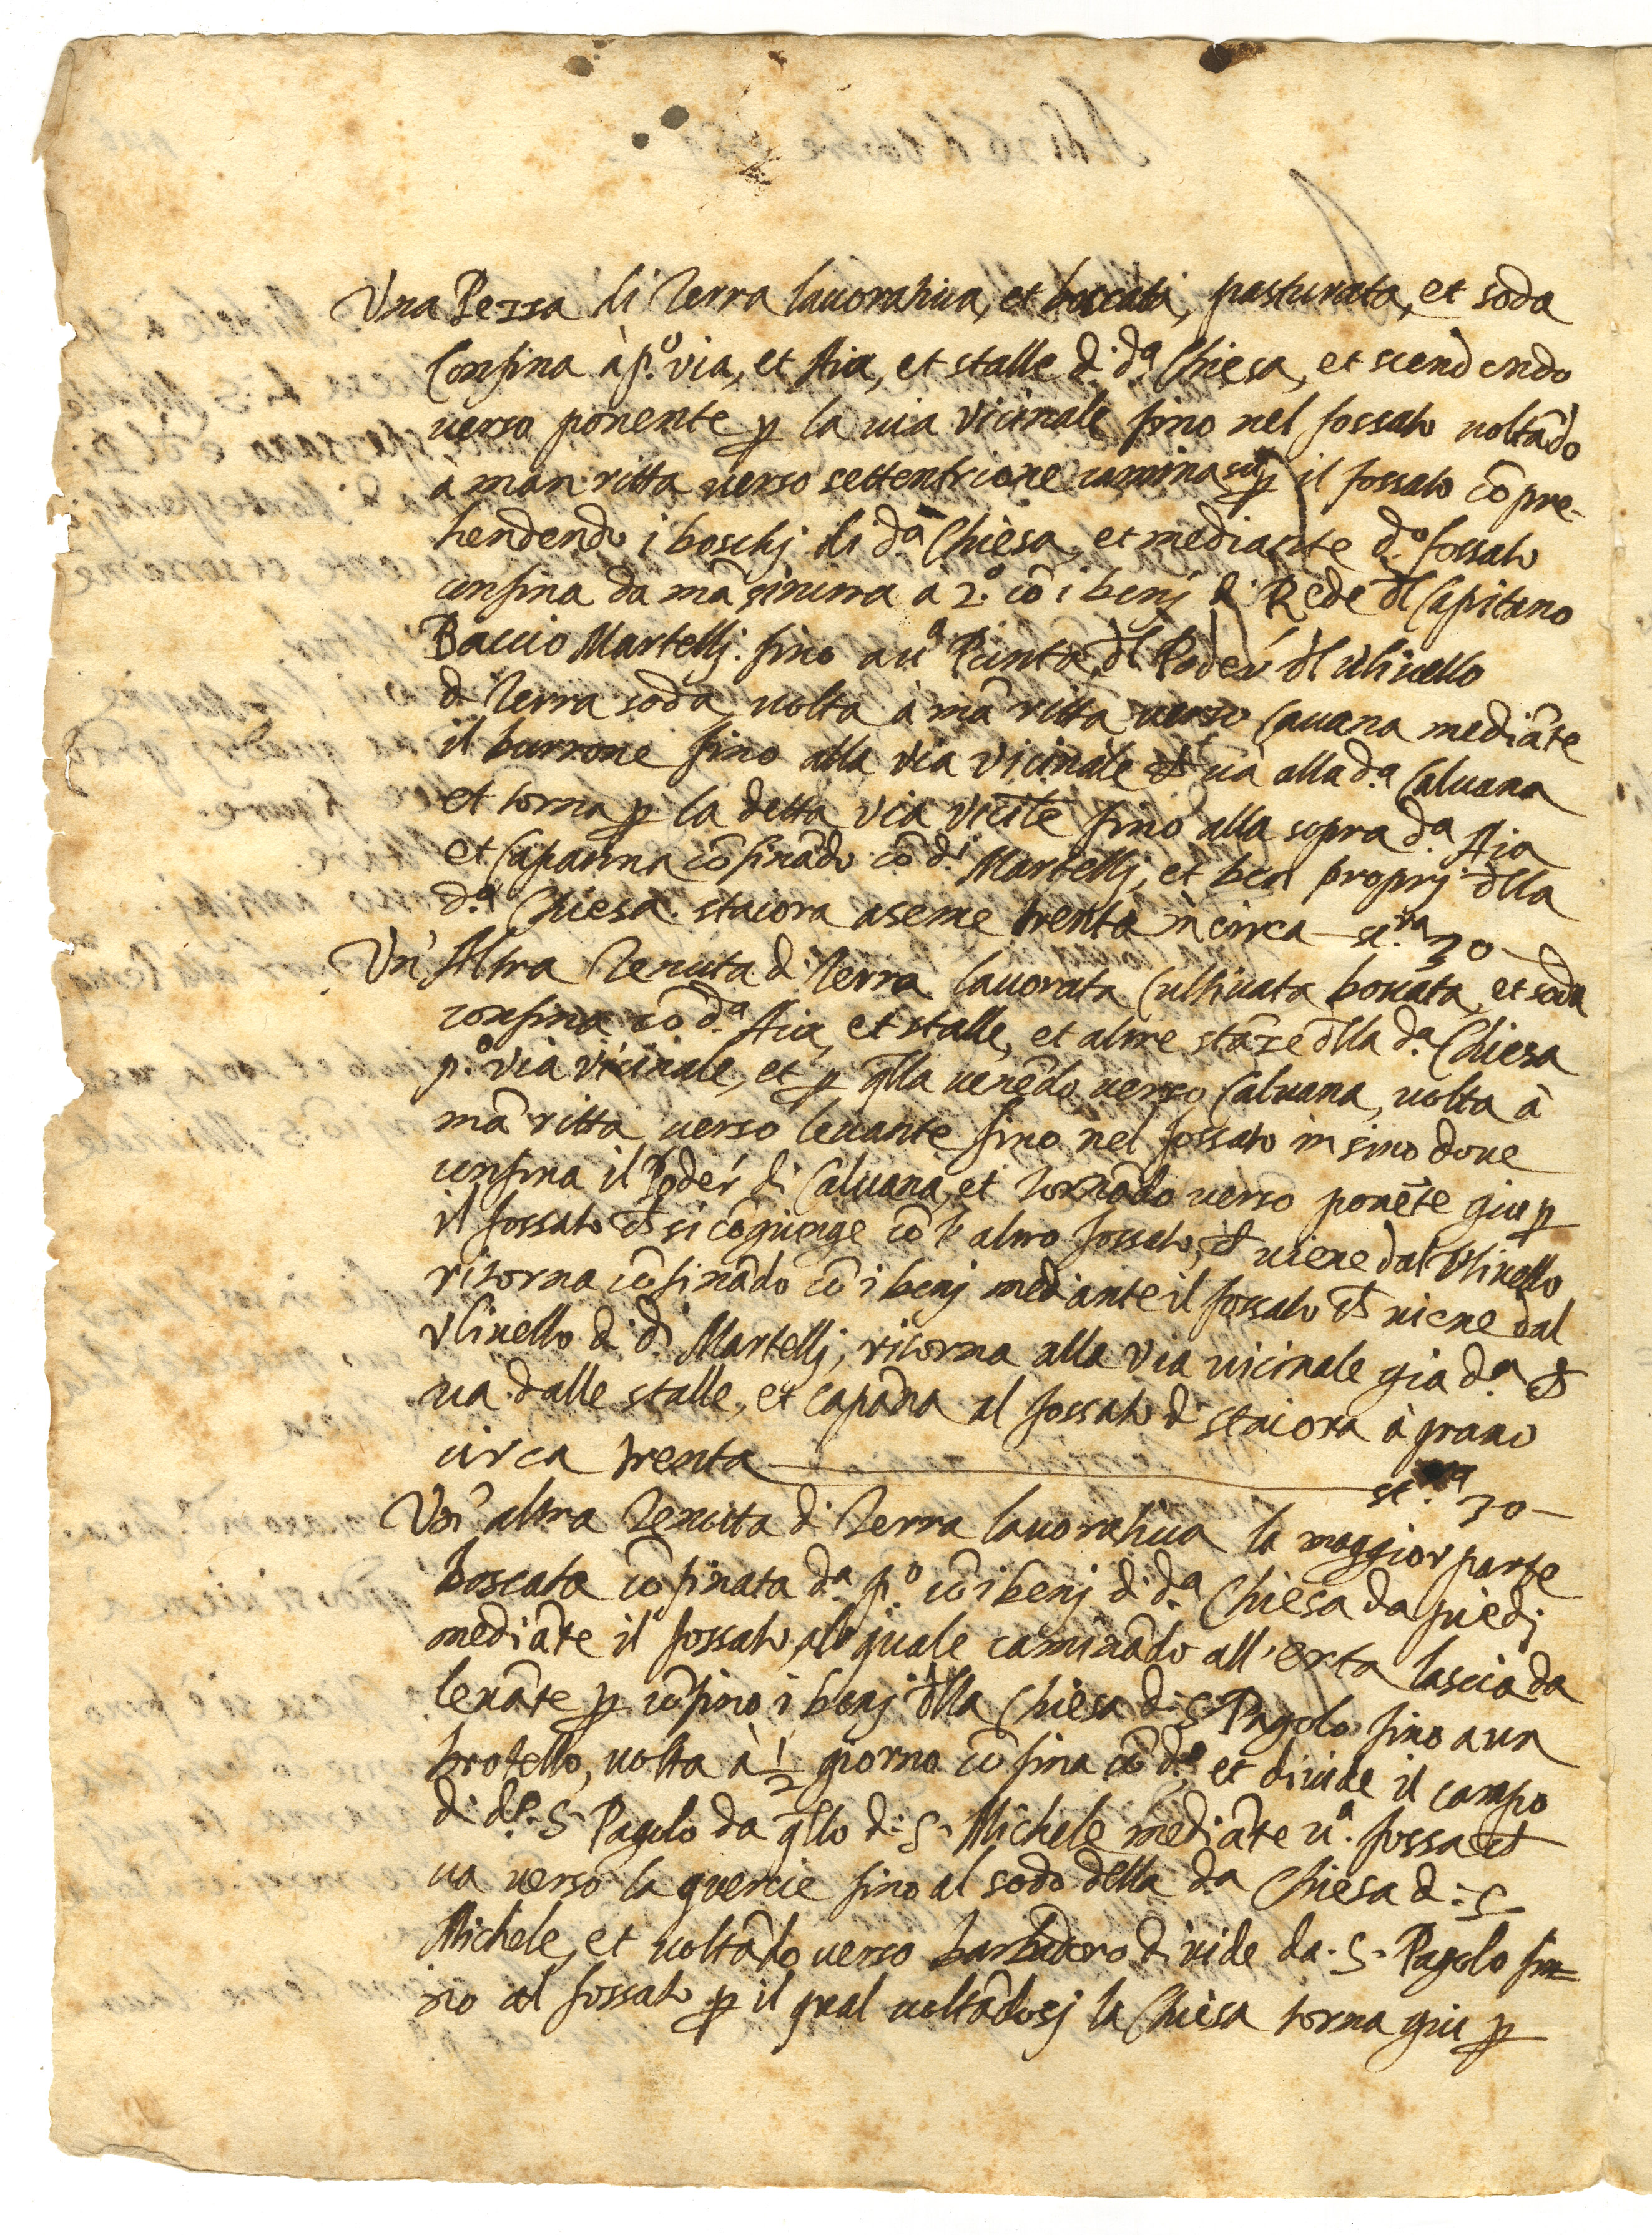 Una Pezza di Terra lauoratiua, et boscata, pasturata, et soda
Confina à p.º via, et Aia, et stalle d. d.ª Chiesa, et scendendo
uerso ponente p la uia vicinale fino nel fossato uoltãdo
à man ritta uerso settentrione camina su p il fossato cõpre-
hendendo i boschj di d.ª Chiesa, et mediante d.º fossato
confina da mã sinistra a 2.º cõ i benj d. Rede dl Capitano
Baccio Martellj. fino a uª Punta dl Poder dl Vliuello
d Terra soda uolta à mã ritta uerso Cauana mediãte
il burrone fino alla via vicinale ch ua alla d.ª Caluana
et torna p la detta via vicile fino alla sopra d.ª Aia
et Capanna cõfinãdo cõ d.i Martellj, et ben proprj dlla
d.ª Chiesa. staiora a seme trenta in circa — st.ra 30 —
Un' Altra Tenuta d Terra lauorata Cultiuata boscata, et soda
confina cõ d.ª Aia, et stalle, et altre stãze dlla d.ª Chiesa
p.º via vicinale, et p qlla uenẽdo uerso Caluana, uolta à
mã ritta uerso leuante fino nel fossato in sino doue
confina il Poder di Caluana, et tornãdo uerso ponẽte giu p
il fossato ch si cõgiunge cõ l'altro fossato, ch uiene dal Vliuello
ritorna cõfinãdo cõ i benj mediante il fossato ch uiene dal
vliuello d. d.i Martellj, ritorna alla via uicinale gia d.ª ch
ua dalle stalle, et capãna al fossato d staiora à grano
circa trenta — st.ra 30 —
Un' altra Tenuta d Terra lauoratiua la maggior parte
Boscata cõfinata d.ª p.º cõ i benj d. d.ª Chiesa da piedj
mediãte il fossato, al quale caminãdo all' erta lascia da
leuãte p cõfino i benj dlla Chiesa d. S. Pagolo fino a un
brotello, uolta à ½ giorno cõfina cõ d.º et diuide il campo
d. d.º S. Pagolo da qllo d. S. Michele mediãte uª. fossa ch
ua uerso la quercie fino al sodo della d.a Chiesa d. S.
Michele, et uoltãdo uerso diuide da. S. Pagolo fin=
no al fossato p il qual uoltãdosj la Chiesa torna giu p